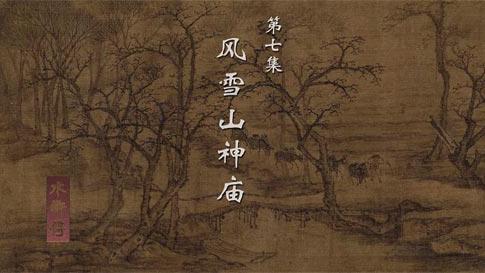 第七集
风雪山神庙
水浒传